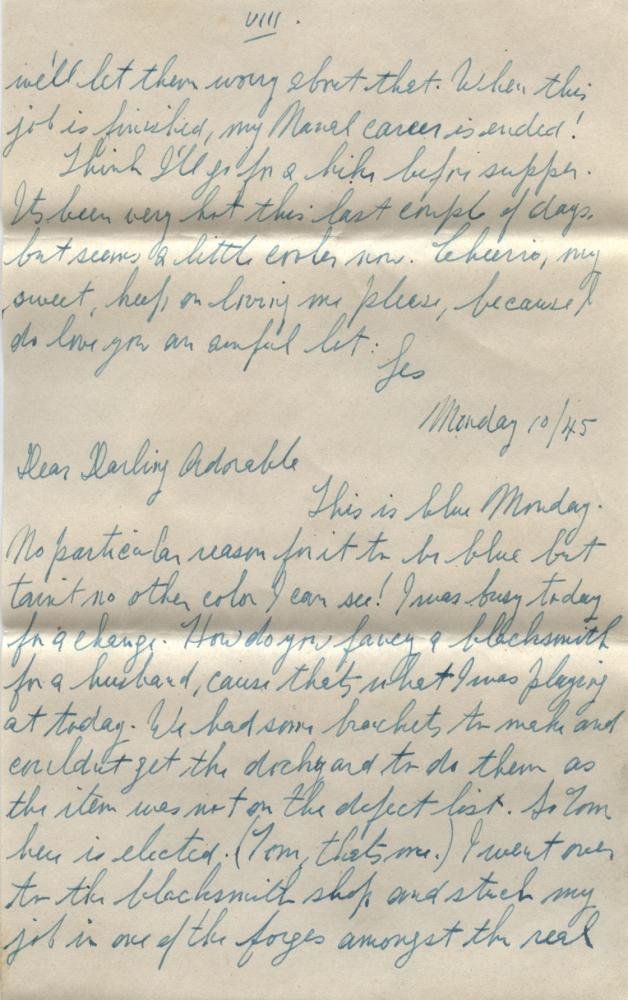 VIII.
we'll let them worry about that. When this
job is finished, my Naval career is ended!
Think I'll go for a hike before supper.
Its been very hot this last couple of days,
but seems a little cooler now. Cheerio, my
sweet, keep on loving me please, because I
do love you an awful lot:
Les
Monday 10/45
Dear Darling Adorable
This is blue Monday.
No particular reason for it to be blue but
taint no other color I can see! I was busy today
for a change. How do you fancy a blacksmith
for a husband, cause thats what I was playing
at today. We had some brackets to make and
couldnt get the dockyard to do them as
the item was not on the defect list. So Tom
here is elected. (Tom, thats me.) I went over
to the blacksmith shop and stuck my
job in one of the forges amongst the real